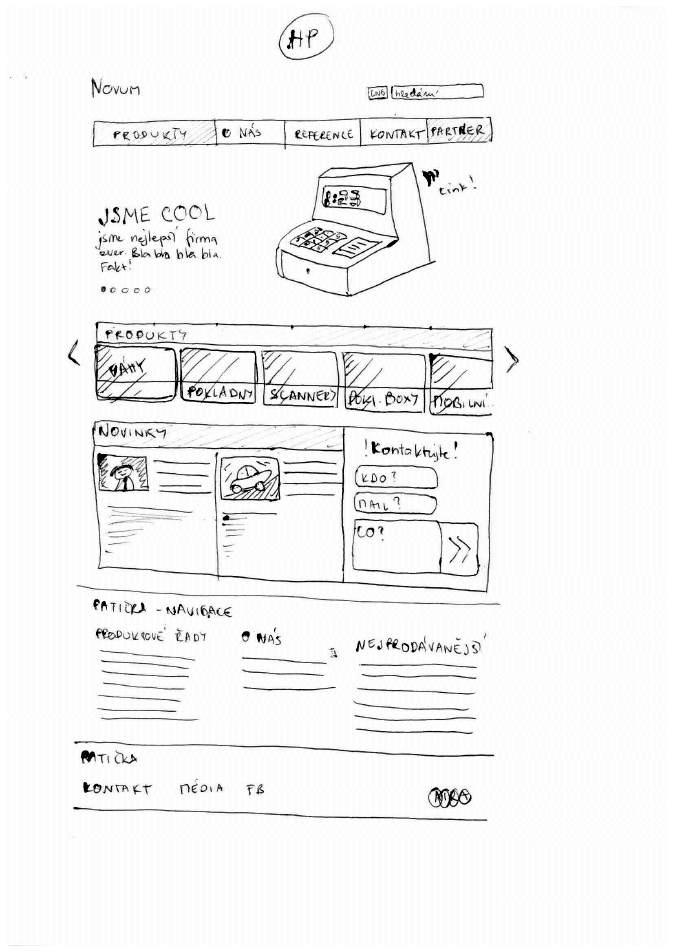 HP
Novum
hledání
PRODUKTY O NÁS REFERENCE KONTAKT PARTNER
cink!
JSME COOL
jsme nejlepší firma
ever. Bla bla bla bla.
Fakt!
PRODUKTY
VÁHY POKLADNY SCANNERY POKL. BOXY MOBILNÍ
NOVINKY
!Kontaktujte!
KDO?
MAIL?
CO?
PATIČKA - NAVIGACE
PRODUKTOVÉ ŘADY O NÁS NEJPRODÁVANĚJŠÍ
PATIČKA
KONTAKT MÉDIA FB